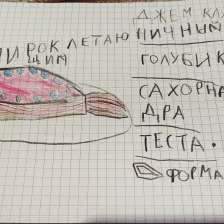 ПИРОК ЛЕТАЮ
ЩИМ
ДЖЕМ КЛ
НИЧНЫЙ
ГОЛУБИК
САХОРНА
ДРА
ТЕСТА.
ФОРМА